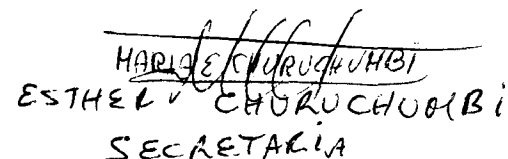 MARIA E CHURUCHUMBI
ESTHER CHURUCHUMBI
SECRETARIA